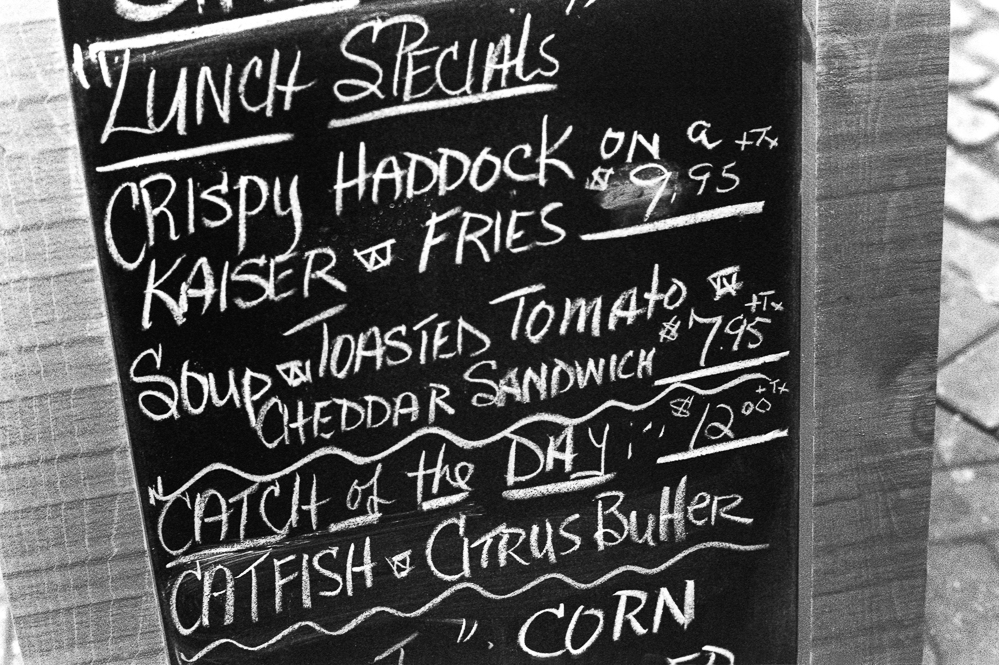 "LUNCH SPECIALS
CRISPY HADDOCK ON a +Tx
KAISER w FRIES $9.95
SOUP w TOASTED TOMATO w +Tx
CHEDDAR SANDWICH $7.95
+Tx
"CATCH of the DAY... $12.00
CATFISH w CITRUS BUTTER
". CORN